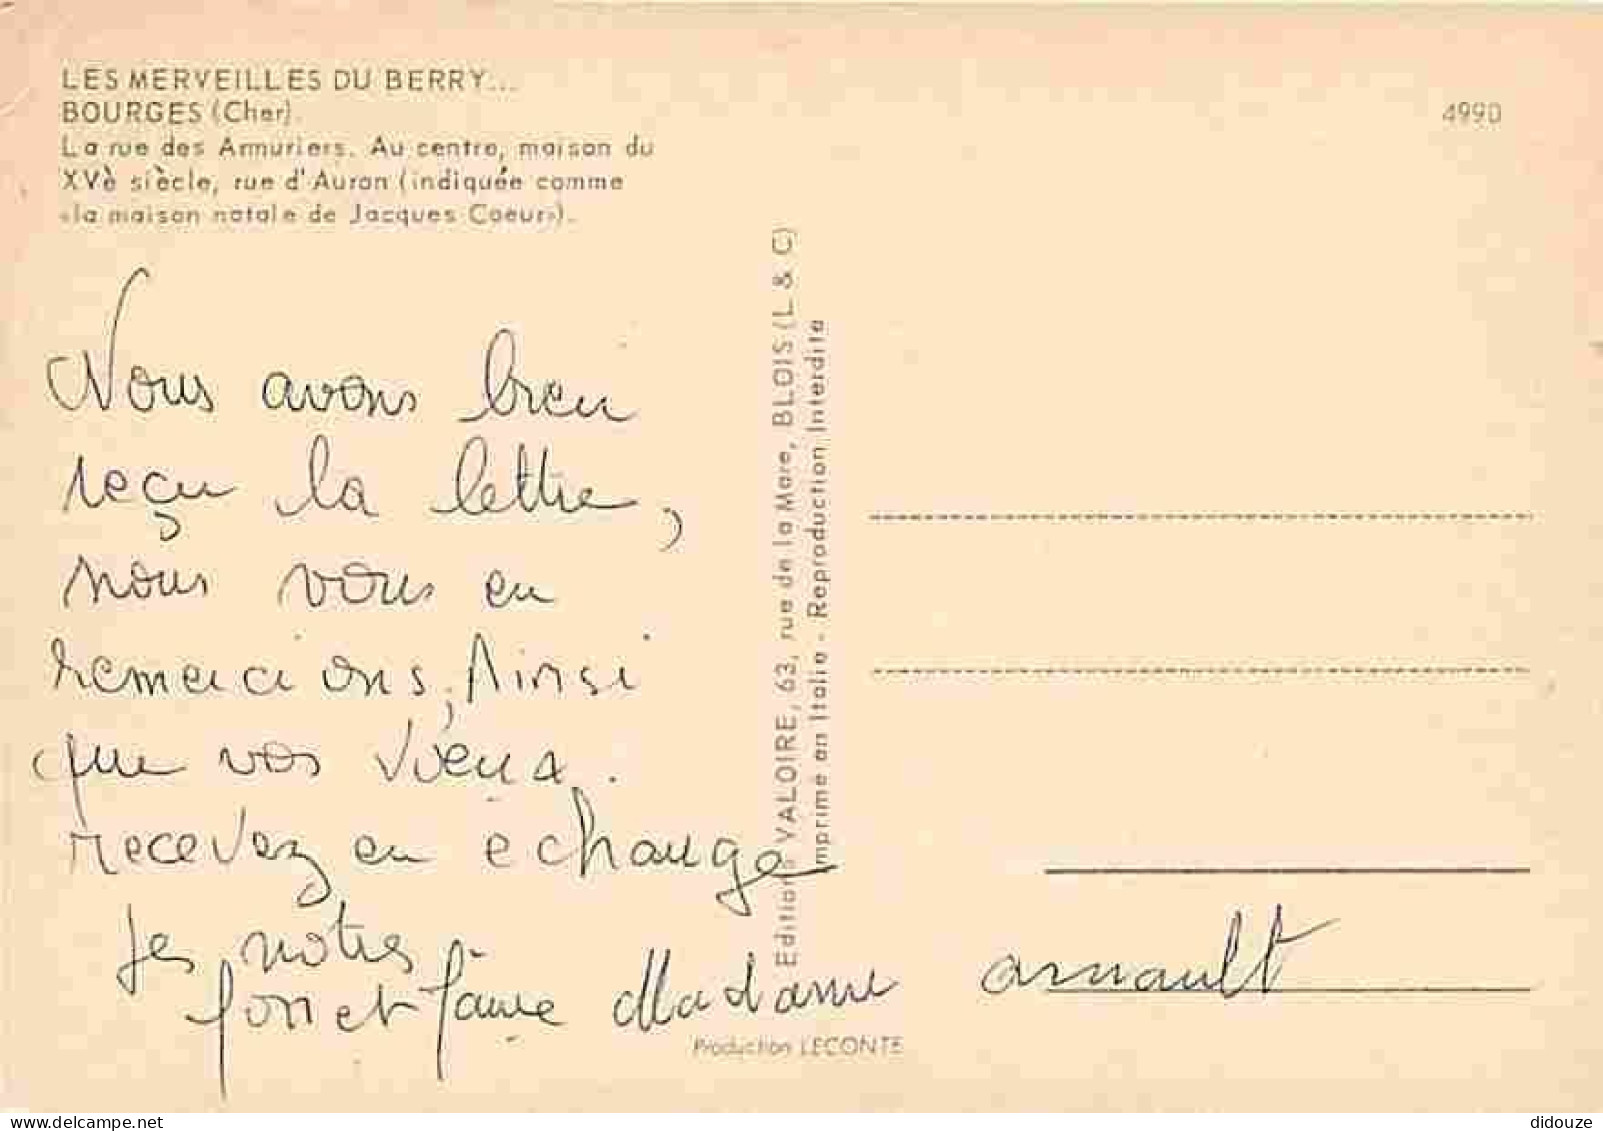 LES MERVEILLES DU BERRY...
BOURGES (Cher).
La rue des Armuriers. Au centre, maison du
XVè siècle, rue d'Auron (indiquée comme
«la maison natale de Jacques Coeur»).
4990
Nous avons bien
reçu la lettre,
nous vous en
remercions, Ainsi
que vos vœux.
recevez en echange
les notres
Madame arnault
Editions VALOIRE, 63, rue de la Mare, BLOIS (L. & C)
Imprimé en Italie - Reproduction Interdite
Production LECONTE
delcampe.net
didouze